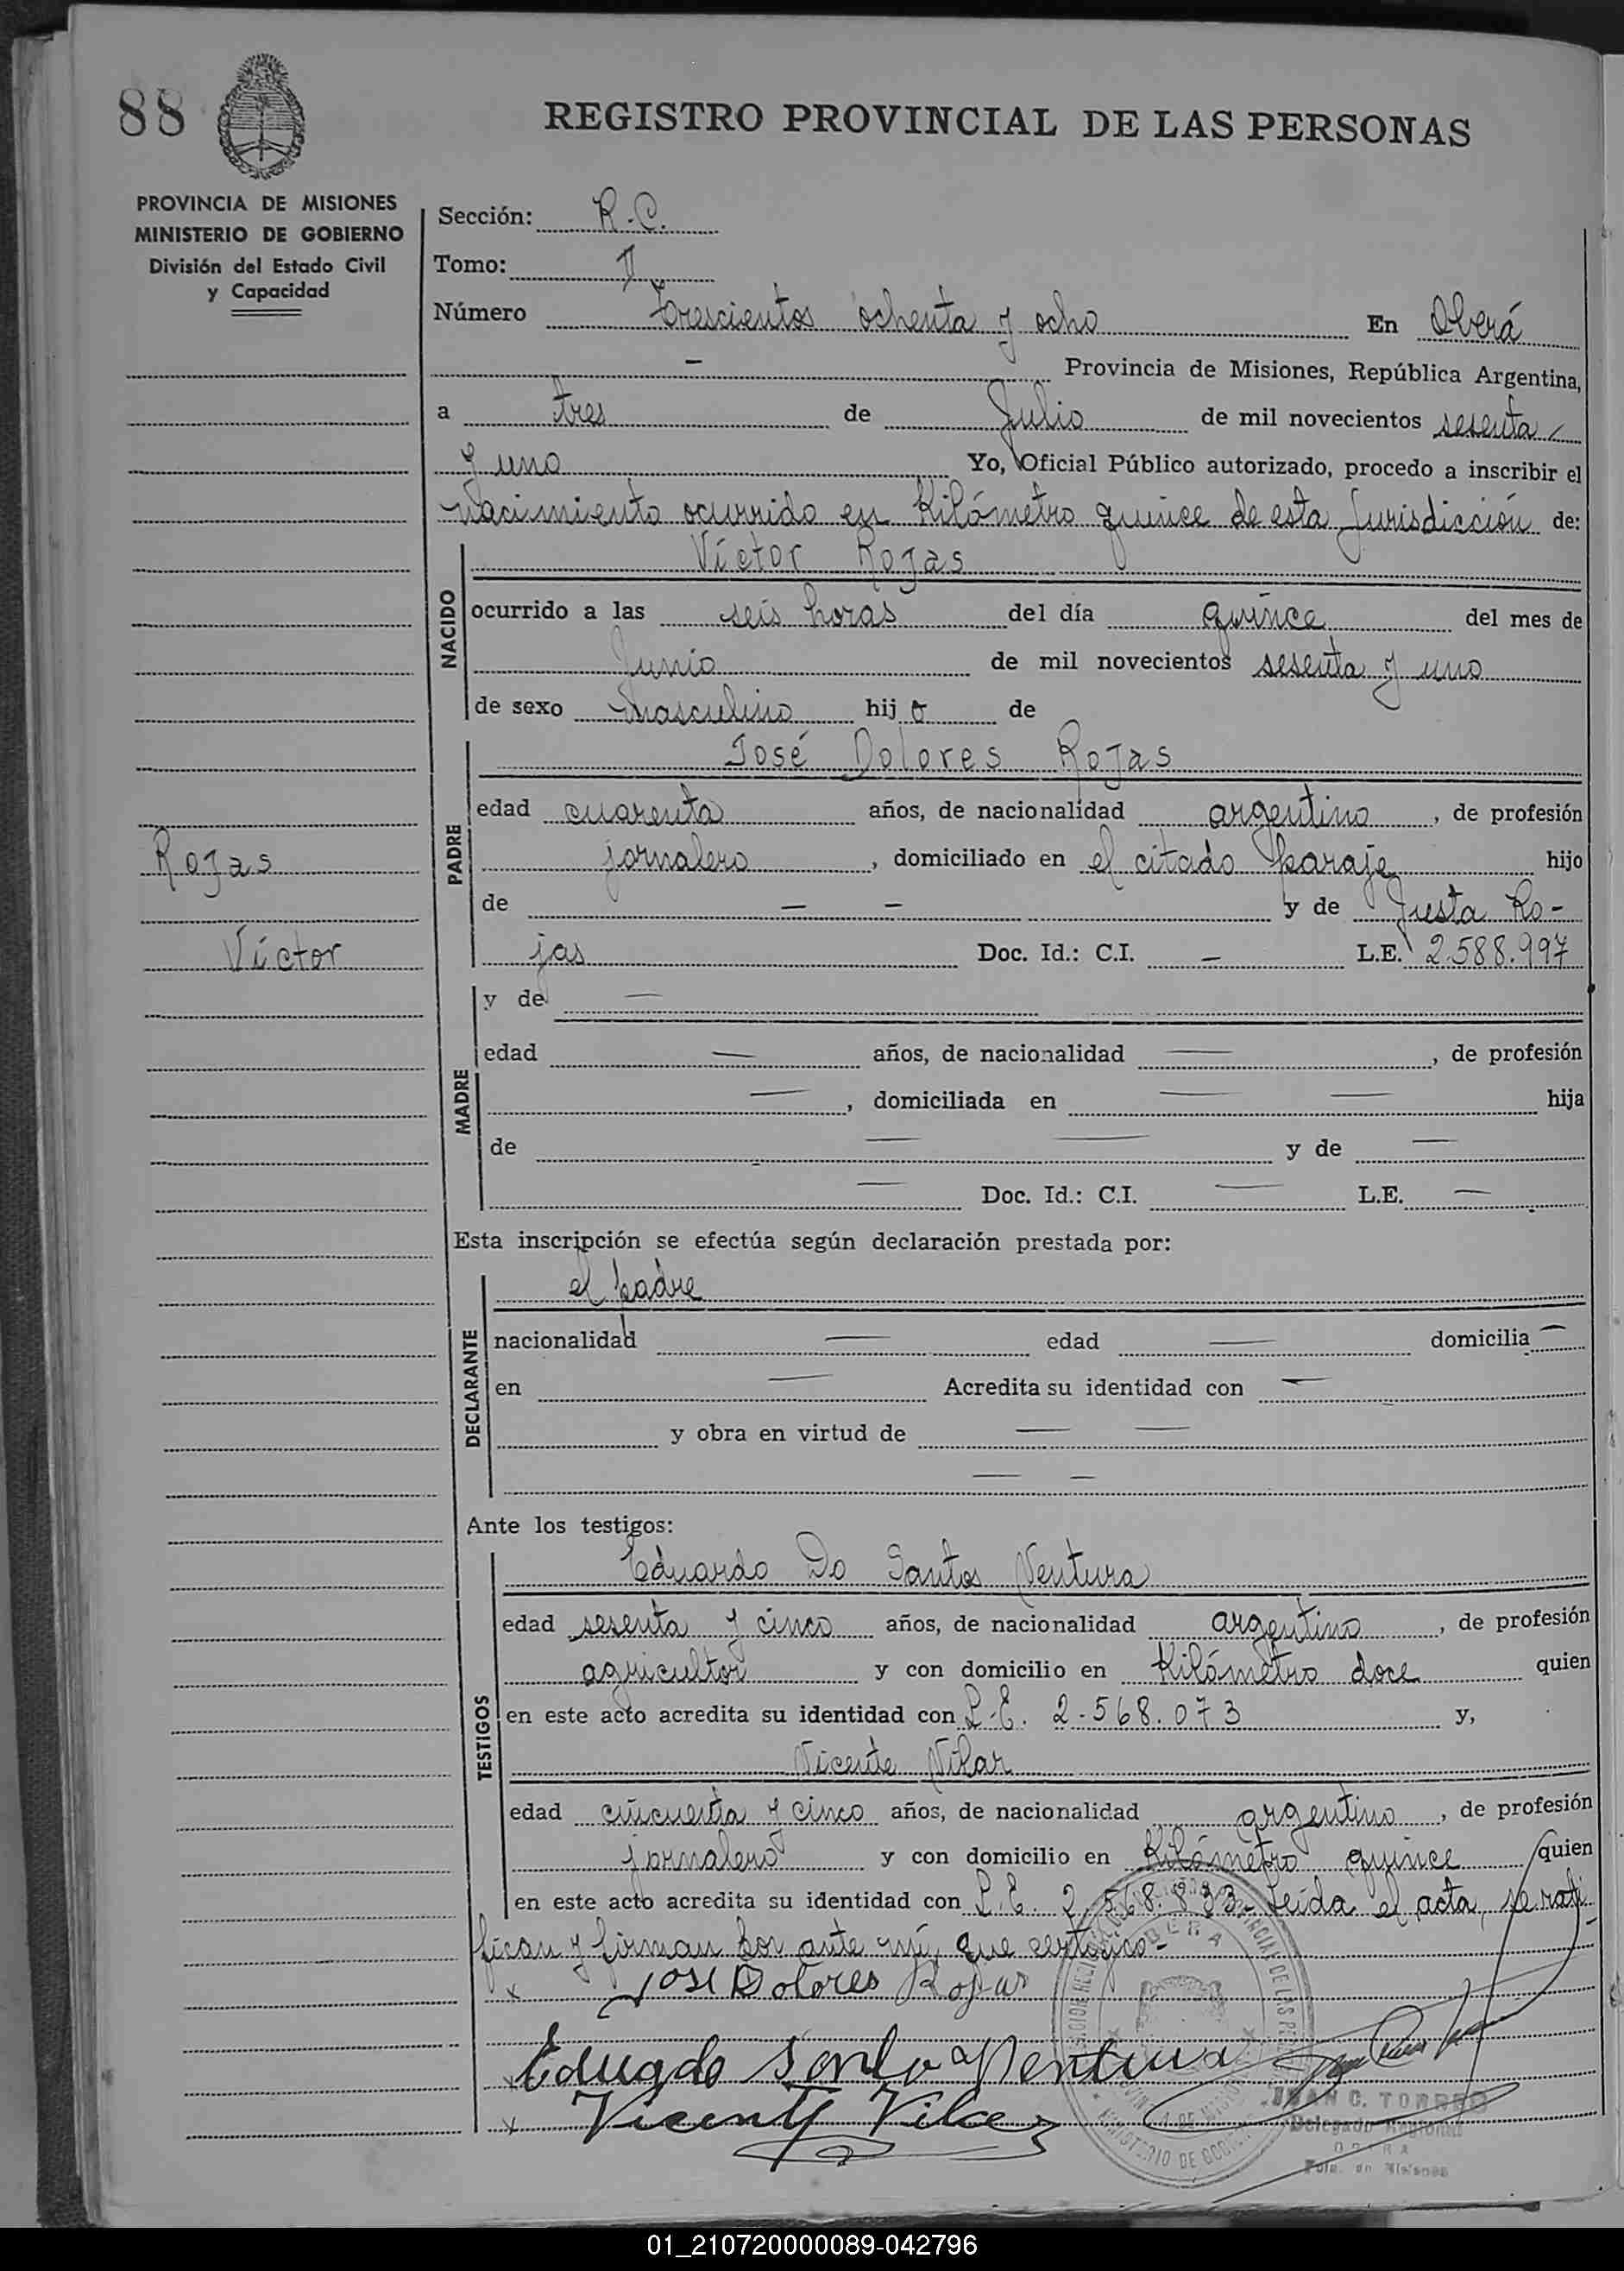 88
REGISTRO PROVINCIAL DE LAS PERSONAS
PROVINCIA DE MISIONES
MINISTERIO DE GOBIERNO
División del Estado Civil
y Capacidad
Sección: R.C.
Tomo: II
Número trescientos ochenta y ocho En Oberá
— Provincia de Misiones, República Argentina,
a tres de Julio de mil novecientos sesenta
y uno Yo, Oficial Público autorizado, procedo a inscribir el
nacimiento ocurrido en Kilómetro quince de esta Jurisdicción de:
NACIDO
Víctor Rojas
ocurrido a las seis horas del día quince del mes de
Junio de mil novecientos sesenta y uno
de sexo masculino hij o de
PADRE
José Dolores Rojas
edad cuarenta años, de nacionalidad argentino, de profesión
jornalero, domiciliado en el citado paraje hijo
de — — y de Justa Ro-
jas Doc. Id.: C.I. — L.E. 2.588.997
Rojas
Víctor
MADRE
y de —
edad — años, de nacionalidad —, de profesión
—, domiciliada en — — hija
de — — y de —
— Doc. Id.: C.I. — L.E. —
Esta inscripción se efectúa según declaración prestada por:
DECLARANTE
el padre
nacionalidad — edad — domicilia —
en — Acredita su identidad con —
y obra en virtud de — —
— —
Ante los testigos:
TESTIGOS
Eduardo Do Santos Ventura
edad sesenta y cinco años, de nacionalidad argentino, de profesión
agricultor y con domicilio en Kilómetro doce quien
en este acto acredita su identidad con L.E. 2.568.073 y,
Vicente Vilar
edad cincuenta y cinco años, de nacionalidad argentino, de profesión
jornalero y con domicilio en Kilómetro quince quien
en este acto acredita su identidad con L.E. 2.568.833- Leída el acta, se rati
fican y firman por ante mí, que certifico-
x José Dolores Rojas
x Eduardo Santo Ventura
x Vicente
JUAN C. TORRES
Delegado Regional
OBERA
Pcia. de Misiones
01_210720000089-042796